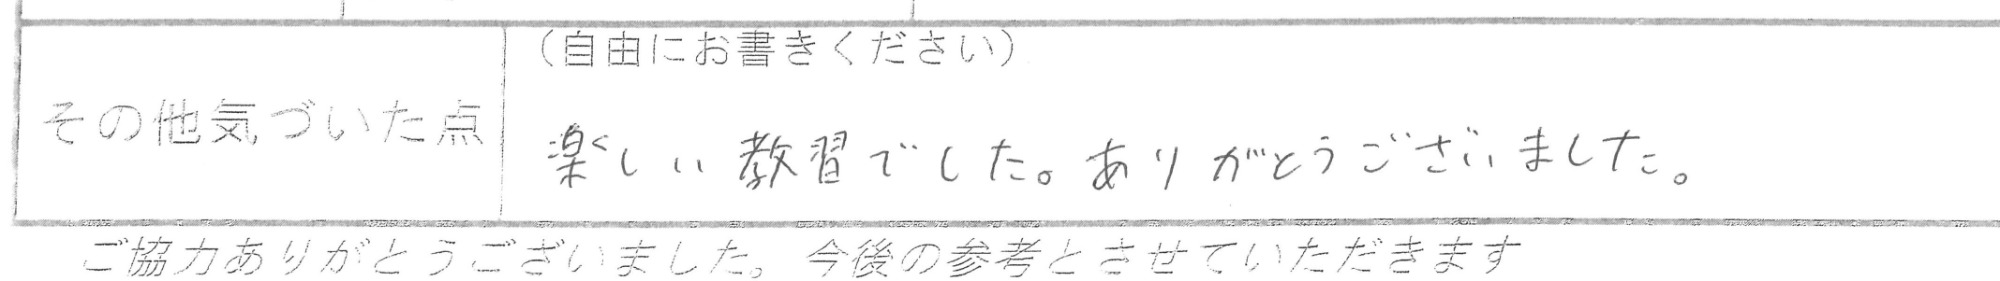 (自由にお書きください)
その他気づいた点
楽しい教習でした。ありがとうございました。
ご協力ありがとうございました。今後の参考とさせていただきます